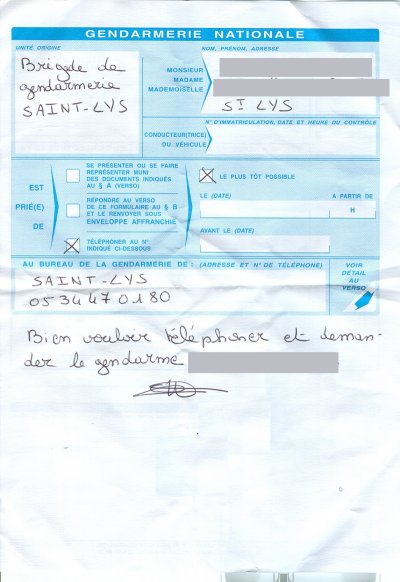 GENDARMERIE NATIONALE
UNITÉ ORIGINE
Brigade de
gendarmerie
SAINT-LYS
NOM, PRÉNOM, ADRESSE
MONSIEUR
MADAME
MADEMOISELLE
St LYS
N° D'IMMATRICULATION, DATE ET HEURE DU CONTRÔLE
CONDUCTEUR(TRICE)
DU VÉHICULE
EST
PRIÉ(E)
DE
SE PRÉSENTER OU SE FAIRE
REPRÉSENTER MUNI
DES DOCUMENTS INDIQUÉS
AU § A (VERSO)
RÉPONDRE AU VERSO
DE CE FORMULAIRE AU § B
ET LE RENVOYER SOUS
ENVELOPPE AFFRANCHIE
TÉLÉPHONER AU N°
INDIQUÉ CI-DESSOUS
LE PLUS TÔT POSSIBLE
LE (DATE) A PARTIR DE
H
AVANT LE (DATE)
AU BUREAU DE LA GENDARMERIE DE : (ADRESSE ET N° DE TÉLÉPHONE)
SAINT-LYS
05 34 47 01 80
VOIR
DÉTAIL
AU
VERSO
Bien vouloir téléphoner et deman-
der le gendarme